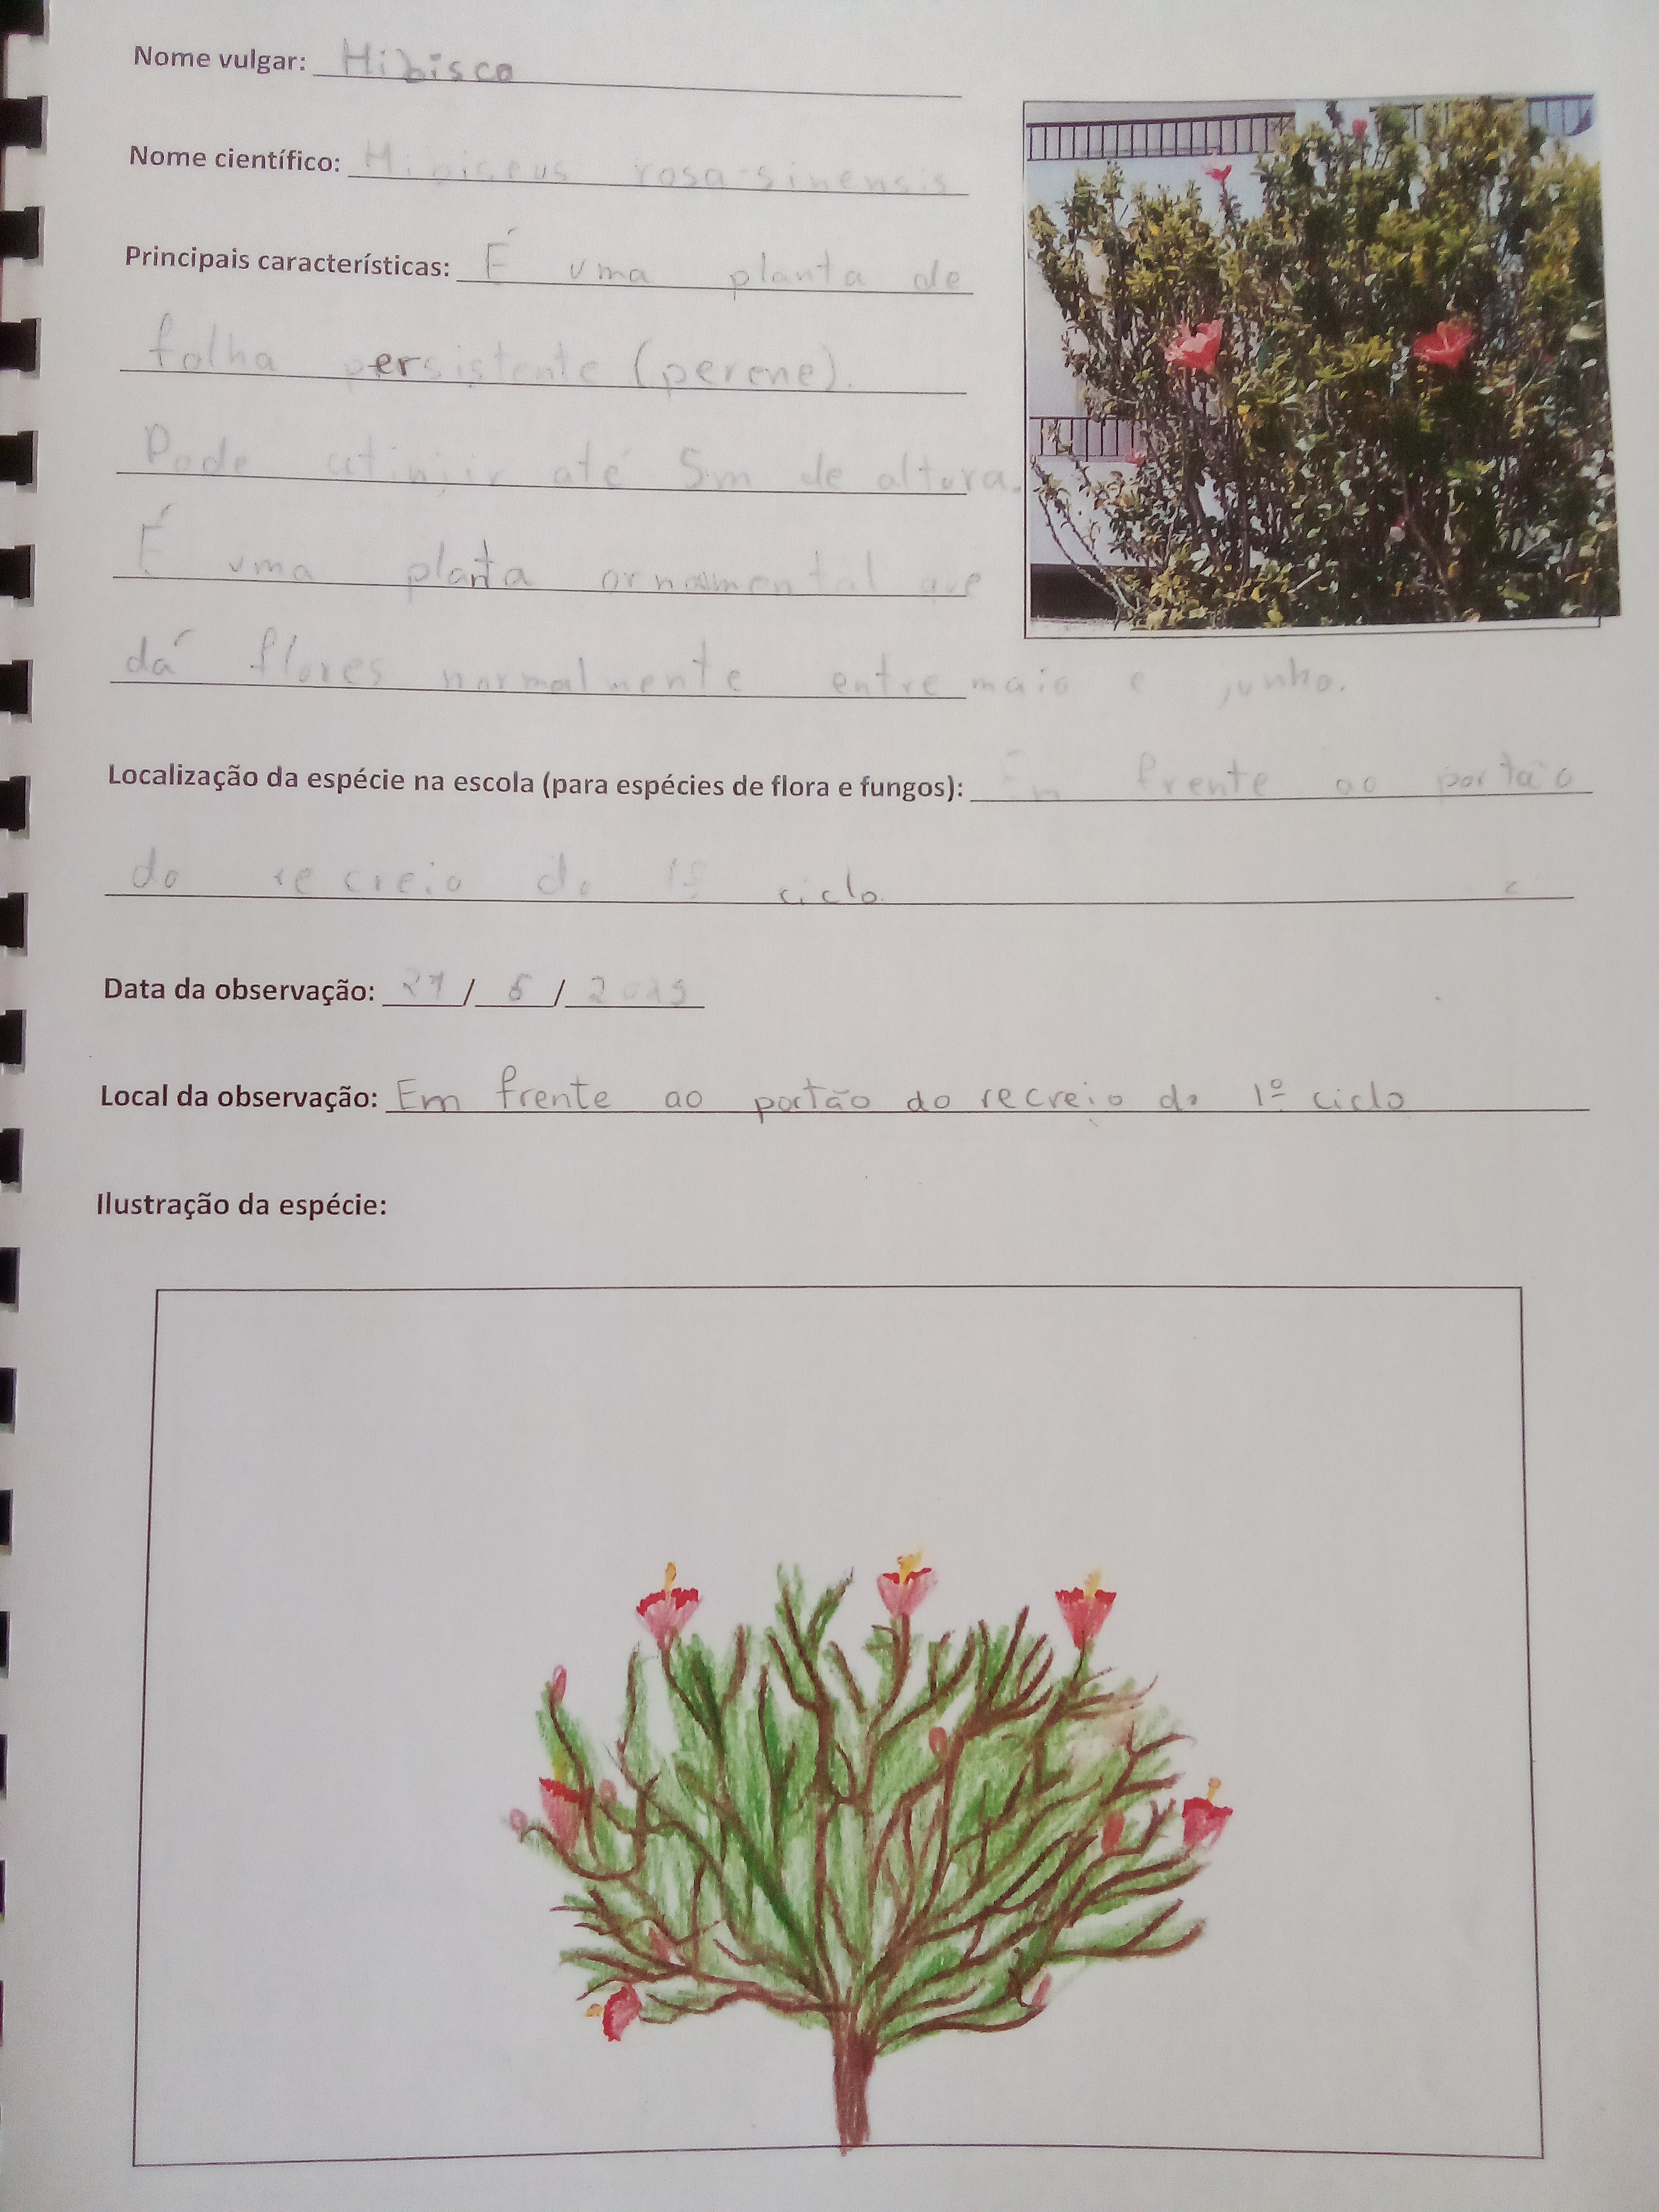 Nome vulgar: Hibisco
Nome científico: Hibiscus rosa-sinensis
Principais características: É uma planta de
folha persistente (perene).
Pode atinjir até 5m de altura.
É uma planta ornamental que
dá flores normalmente entre maio e junho.
Localização da espécie na escola (para espécies de flora e fungos): Em frente ao portão
do recreio do 1º ciclo.
Data da observação: / /
Local da observação: Em frente ao portão do recreio do 1º ciclo
Ilustração da espécie: